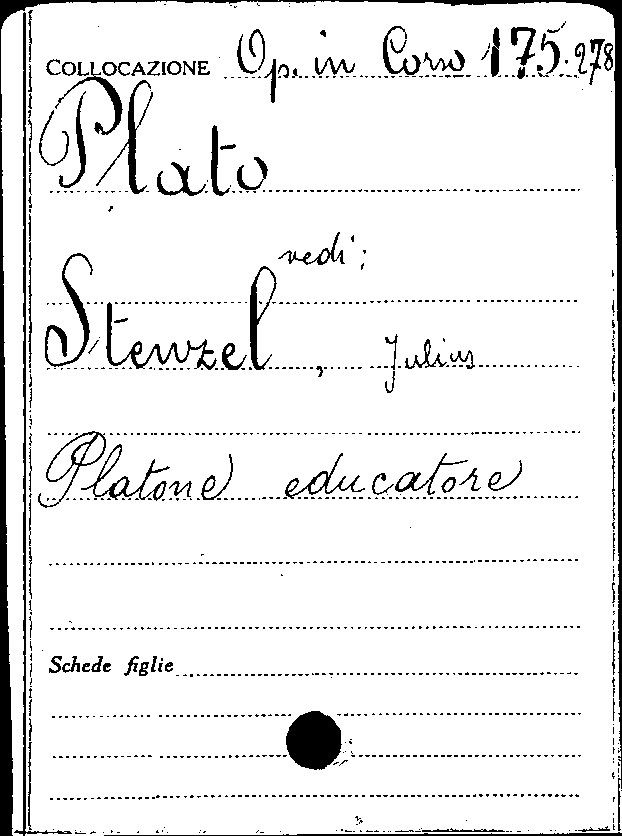 COLLOCAZIONE Op. in Corso 175.278
Plato
vedi:
Stenzel, Julius
Platone educatore
Schede figlie